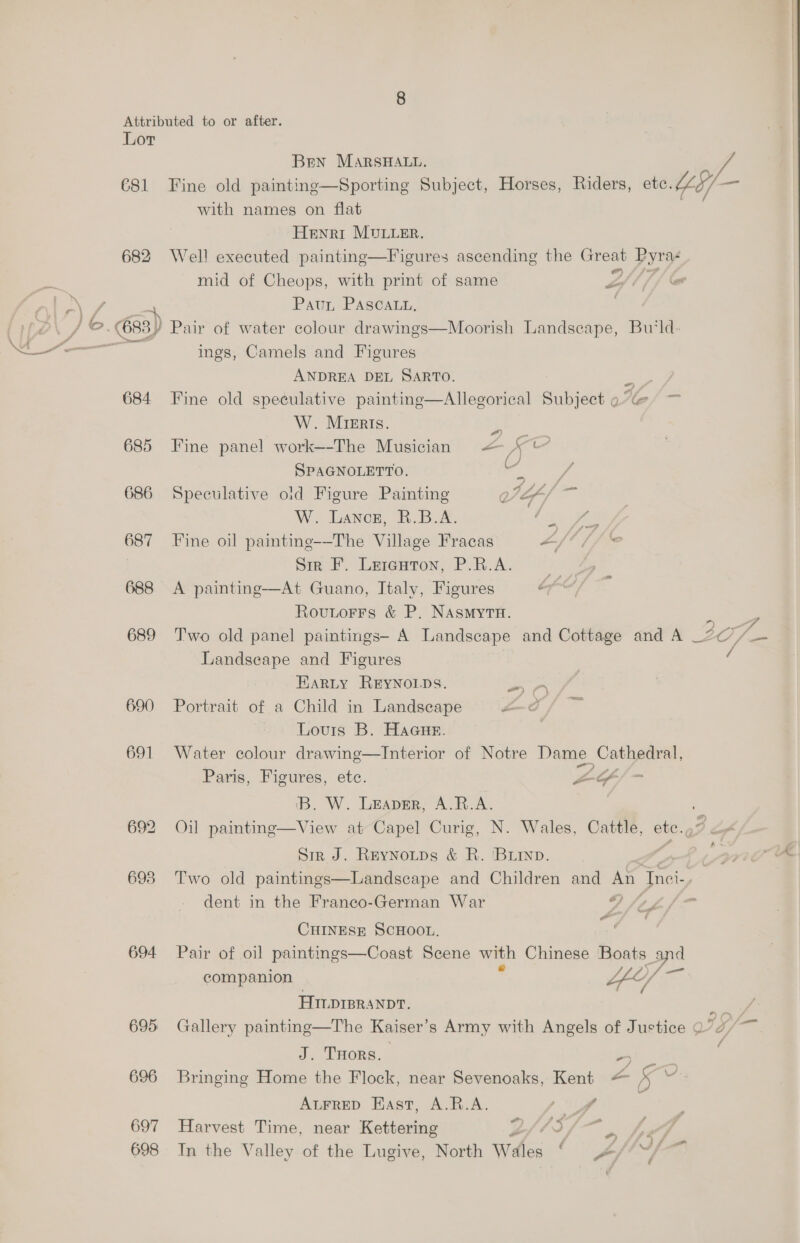 8
Attributed to or after.
Lot
Ben Marshall.
681 Fine old painting—Sporting Subject, Horses, Riders, etc.
with names on flat
Henri Muller.
682 Well executed painting—Figures ascending the Great Pyra-
mid of Cheops, with print of same
Paul Pascall.
683 Pair of water colour drawings—Moorish Landscape, Build-
ings, Camels and Figures
Andrea del Sarto.
684 Fine old speculative painting—Allegorical Subject
W. Mieris.
685 Fine panel work—The Musician
Spagnoletto.
686 Speculative old Figure Painting
W. Lance, R.B.A.
687 Fine oil painting—The Village Fracas
Sir F. Leighton, P.R.A.
688 A painting—At Guano, Italy, Figures
Rouloffs & P. Nasmyth.
689 Two old panel paintings— A Landscape and Cottage and A
Landscape and Figures
Early Reynolds.
690 Portrait of a Child in Landscape
Louis B. Hague.
691 Water colour drawing—Interior of Notre Dame Cathedral,
Paris, Figures, etc.
B. W. Leader, A.R.A.
692 Oil painting—View at Capel Curig, N. Wales, Cattle, etc.
Sir J. Reynolds & R. Blind.
693 Two old paintings—Landscape and Children and An Inci-
dent in the Franco-German War
Chinese School.
694 Pair of oil paintings—Coast Scene with Chinese Boats and
companion
Hildibrandt.
695 Gallery painting—The Kaiser's Army with Angels of Justice
J. Thors.
696 Bringing Home the Flock, near Sevenoaks, Kent
Alfred East, A.R.A.
697 Harvest Time, near Kettering
698 In the Valley of the Lugive, North Wales